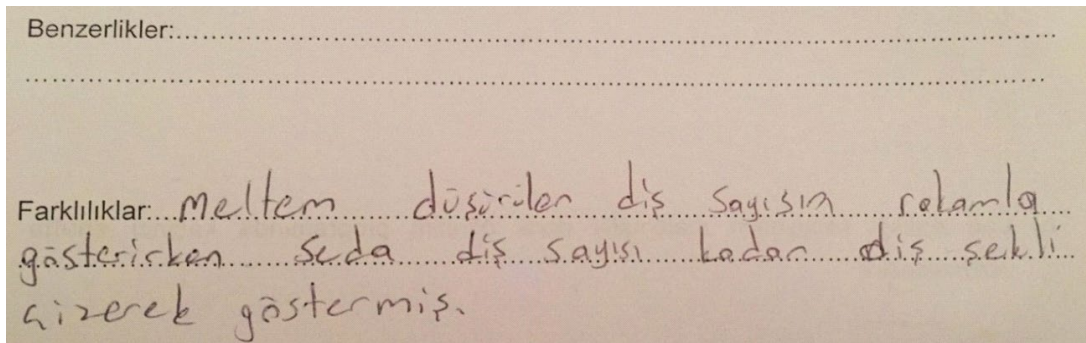 Benzerlikler:..........
..........
Farklılıklar: meltem düşürülen diş sayısın rakamla
gösterirken seda diş sayısı kadar diş şekli
çizerek göstermiş.